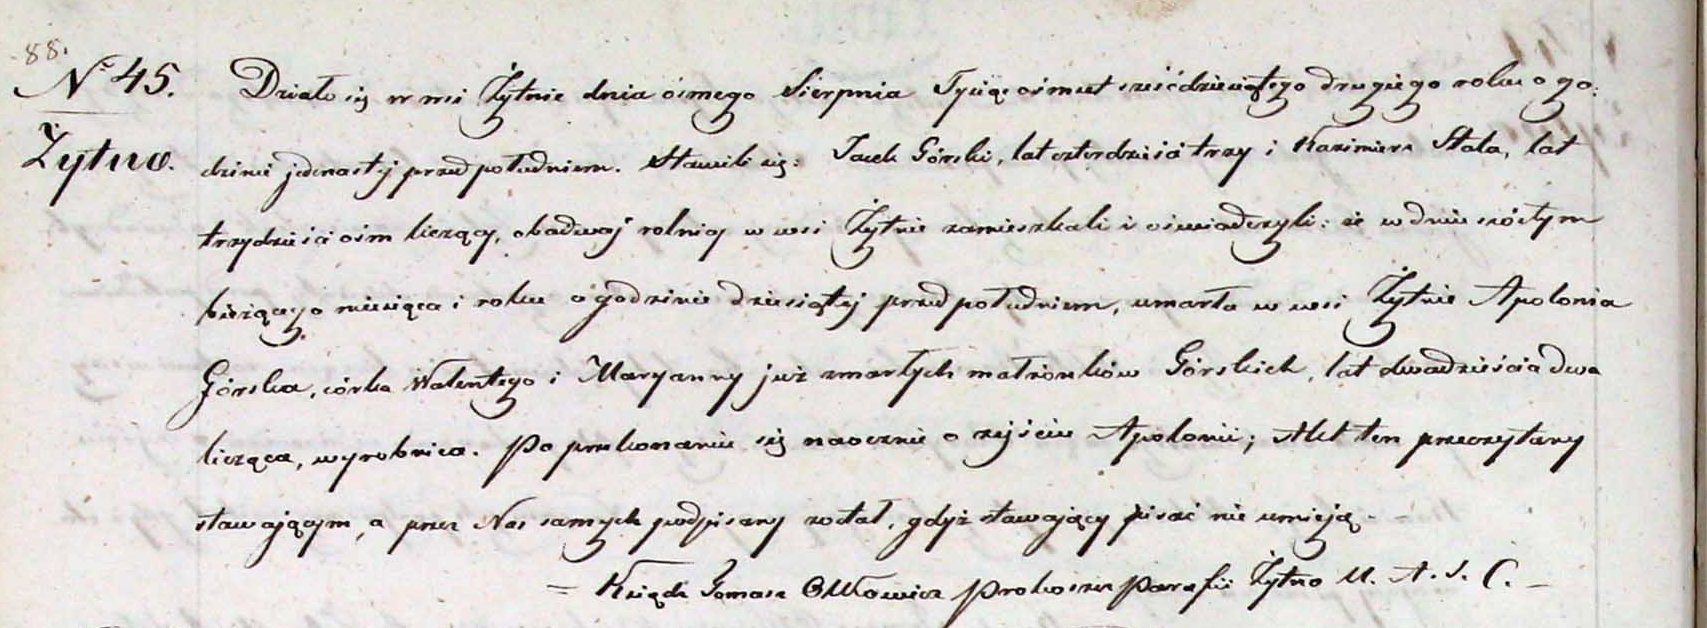 88.
Nº 45.
Żytno.
Działo się w wsi Żytnie dnia ósmego Sierpnia Tysiąc ośmset sześćdziesiątego drugiego roku o go:
dzinie jedenastej przed południem. Stawili się: Jacek Górski, lat czterdzieści trzy i Kazimierz Stala, lat
trzydzieści ośm liczący, obadwaj rolnicy w wsi Żytnie zamieszkali i oświadczyli: że w dniu szóstym
bieżącego miesiąca i roku o godzinie dziesiątej przed południem, umarła w wsi Żytnie Apolonia
Górska, córka Walentego i Maryanny już zmarłych małżonków Górskich, lat dwadzieścia dwa
licząca, wyrobnica. Po przekonaniu się naocznie o zejściu Apolonii; Akt ten przeczytany
stawającym, a przez Nas samych podpisany został, gdyż stawający pisać nie umieją.
= Ksiądz Tomasz Proboszcz Parafii Żytno U. A. S. C. –